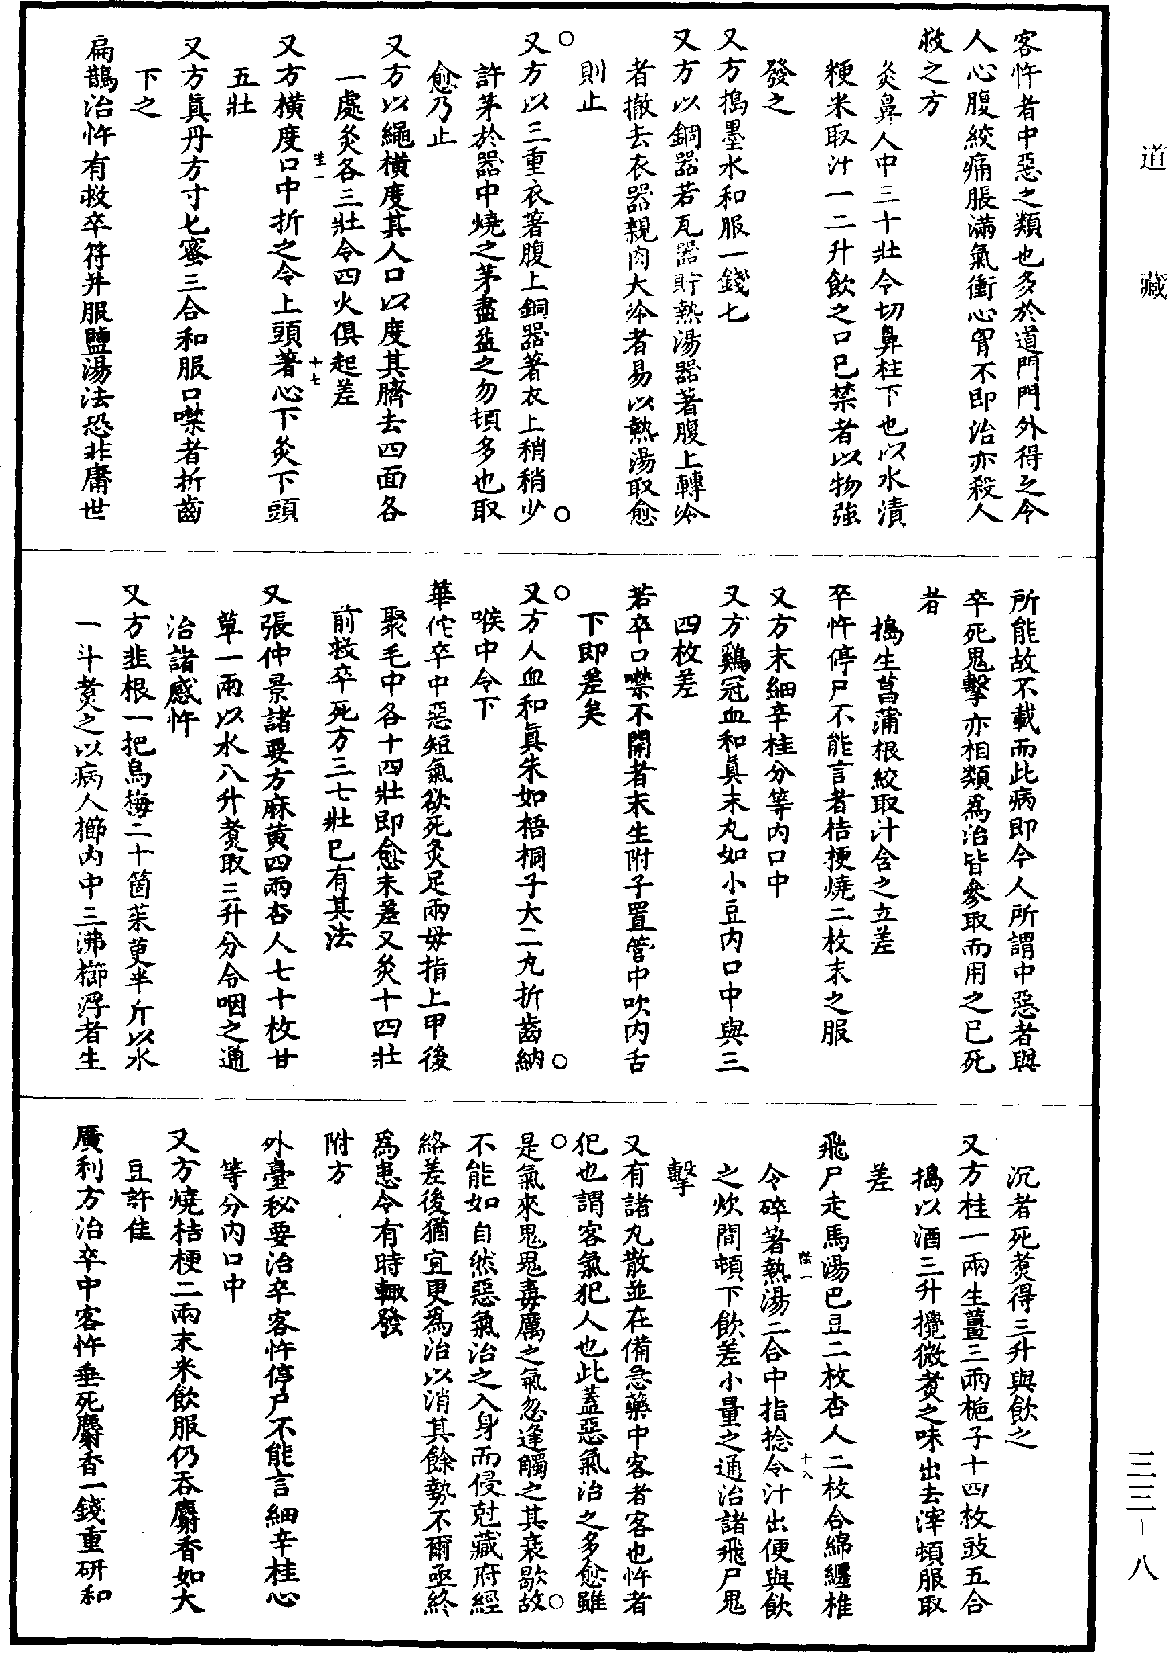 道藏
客忤者中惡之類也多於道門門外得之令
人心腹絞痛脹滿氣衝心胷不即治亦殺人
救之方
灸鼻人中三十壯令切鼻柱下也以水漬
粳米取汁一二升飲之口已禁者以物強
發之
又方搗墨水和服一錢七
又方以銅器若瓦器貯熱湯器著腹上轉冷
者撤去衣器親肉大冷者易以熱湯取愈
則止
又方以三重衣著腹上銅器著衣上稍稍少
許茅於器中燒之茅盡益之勿頓多也取
愈乃止
又方以繩橫度其人口以度其臍去四面各
一處灸各三壯令四火俱起差
生一
十七
又方橫度口中折之令上頭著心下灸下頭
五壯
又方眞丹方寸匕蜜三合和服口噤者折齒
下之
扁鵲治忤有救卒符并服鹽湯法恐非庸世
所能故不載而此病即今人所謂中惡者與
卒死鬼擊亦相類爲治皆參取而用之已死
者
搗生菖蒲根絞取汁含之立差
卒忤停尸不能言者桔梗燒二枚末之服
又方末細辛桂分等内口中
又方鷄冠血和眞末丸如小豆内口中與三
四枚差
若卒口噤不開者末生附子置管中吹内舌
下即差矣
又方人血和眞朱如梧桐子大二丸折齒納
喉中令下
華佗卒中惡短氣欲死灸足兩母指上甲後
聚毛中各十四壯即愈未差又灸十四壯
前救卒死方三七壯已有其法
又張仲景諸要方麻黄四兩杏人七十枚甘
草一兩以水八升煑取三升分令咽之通
治諸感忤
又方韭根一把烏梅二十箇茱萸半斤以水
一斗煑之以病人櫛内中三沸櫛浮者生
沉者死煑得三升與飲之
又方桂一兩生薑三兩梔子十四枚豉五合
搗以酒三升攪微煑之味出去滓頓服取
差
飛尸走馬湯巴豆二枚杏人二枚合綿纏椎
令碎著熱湯二合中指捻令汁出便與飲
陸一
十八
之炊間頓下飲差小量之通治諸飛尸鬼
擊
又有諸丸散並在備急藥中客者客也忤者
犯也謂客氣犯人也此蓋惡氣治之多愈雖
是氣來鬼鬼毒厲之氣忽逢觸之其衰歇故
不能如自然惡氣治之入身而侵尅藏府經
絡差後猶宜更爲治以消其餘勢不爾亟終
爲患令有時輙發
附方
外臺秘要治卒客忤停尸不能言細辛桂心
等分内口中
又方燒桔梗二兩末米飲服仍吞麝香如大
豆許佳
廣利方治卒中客忤垂死麝香一錢重研和
三三－八